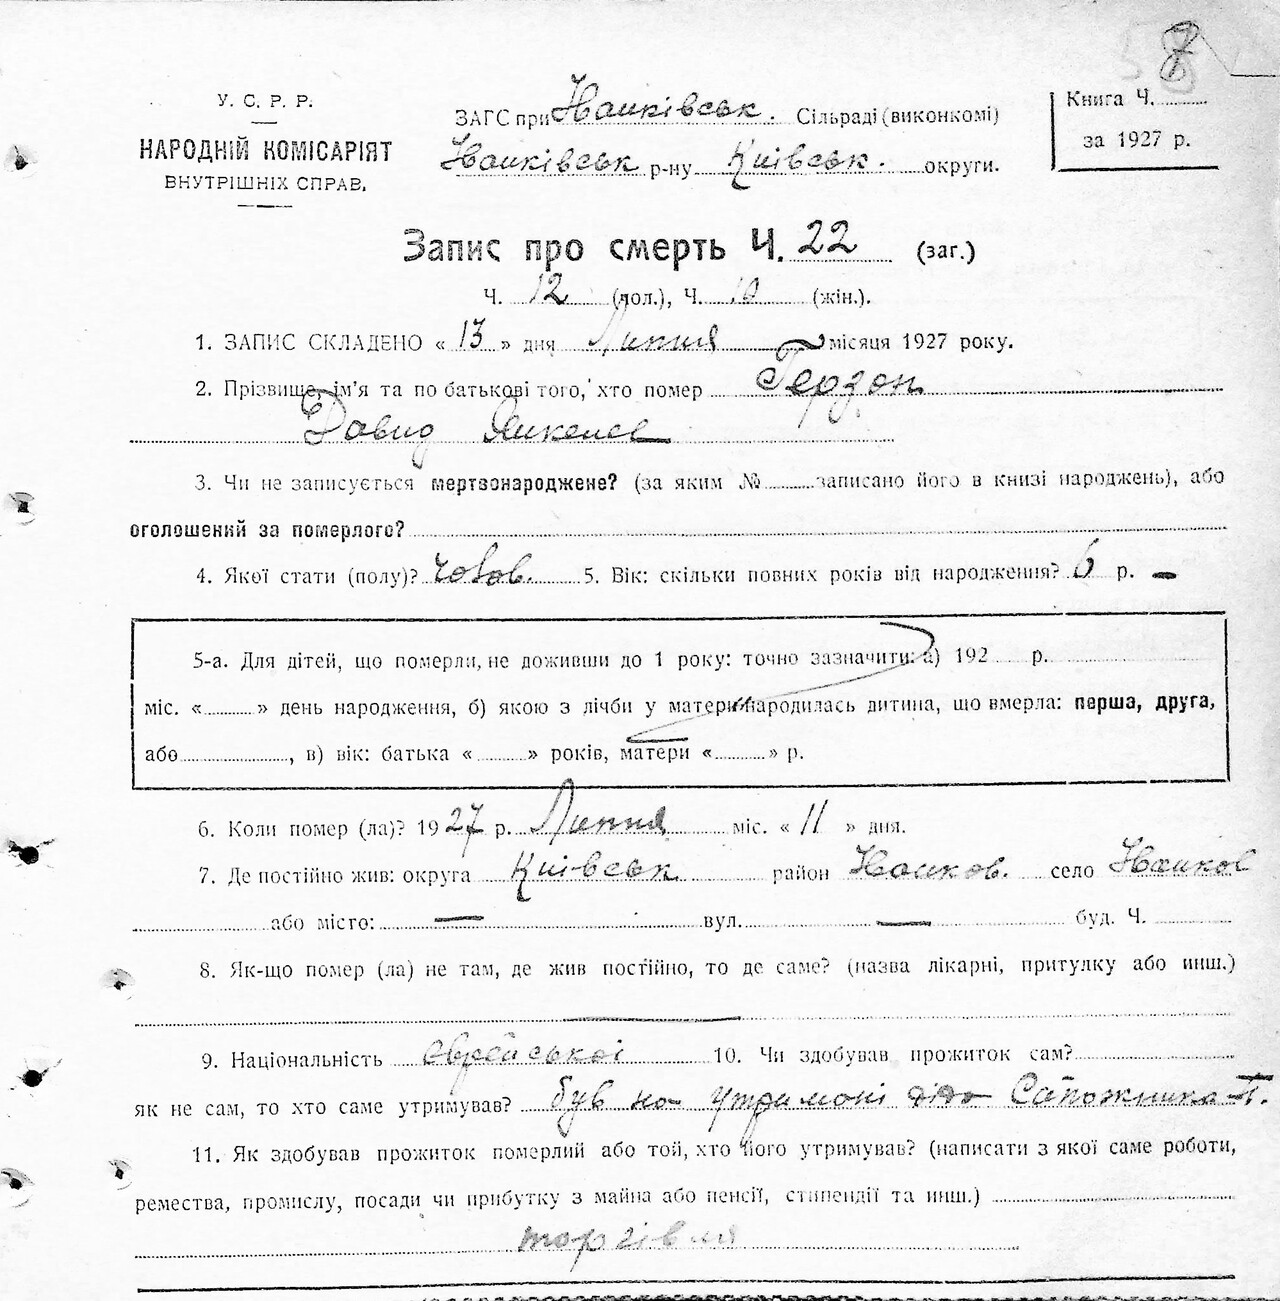 8
У. С. Р. Р.
НАРОДНІЙ КОМІСАРІЯТ
ВНУТРІШНІХ СПРАВ.
ЗАГС при Іванківськ. Сільраді (виконкомі)
Іванківськ р-ну Київськ. округи.
Книга Ч.
за 1927 р.
Запис про смерть Ч. 22 (заг.)
Ч. 12 (чол.), Ч. 10 (жін.).
1. ЗАПИС СКЛАДЕНО « 13 » дня Липня місяця 1927 року.
2. Прізвище, ім'я та по батькові того, хто помер Герзон
Довид Янкелев
3. Чи не записується мертвонароджене? (за яким № записано його в книзі народжень), або
оголошений за померлого?
4. Якої стати (полу)? чолов. 5. Вік: скільки повних років від народження? 6 р. —
5-а. Для дітей, що померли, не доживши до 1 року: точно зазначити: а) 192 р.
міс. « » день народження, б) якою з лічби у матери народилась дитина, що вмерла: перша, друга,
або , в) вік: батька « » років, матери « » р.
6. Коли помер (ла)? 1927 р. Липня міс. « 11 » дня.
7. Де постійно жив: округа Київськ район Іванков. село Іванков
або місто: — вул. — буд. Ч.
8. Як-що помер (ла) не там, де жив постійно, то де саме? (назва лікарні, притулку або инш.)
9. Національність Єврейської 10. Чи здобував прожиток сам?
як не сам, то хто саме утримував? був на утримоні діда Сапожника
11. Як здобував прожиток померлий або той, хто його утримував? (написати з якої саме роботи,
ремества, промислу, посади чи прибутку з майна або пенсії, стипендії та инш.)
торгівля